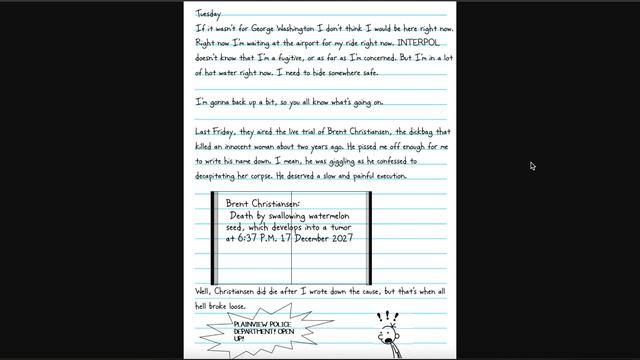 Tuesday
If it wasn't for George Washington I don't think I would be here right now.
Right now I'm waiting at the airport for my ride right now. INTERPOL
doesn't know that I'm a fugitive, or as far as I'm concerned. But I'm in a lot
of hot water right now. I need to hide somewhere safe.
I'm gonna back up a bit, so you all know what's going on.
Last Friday, they aired the live trial of Brent Christiansen, the dickbag that
killed an innocent woman about two years ago. He pissed me off enough for me
to write his name down. I mean, he was giggling as he confessed to
decapitating her corpse. He deserved a slow and painful execution.
Brent Christiansen:
Death by swallowing watermelon
seed, which develops into a tumor
at 6:37 P.M. 17 December 2027
Well, Christiansen did die after I wrote down the cause, but that's when all
hell broke loose.
PLAINVIEW POLICE
DEPARTMENT! OPEN
UP!
! ! !